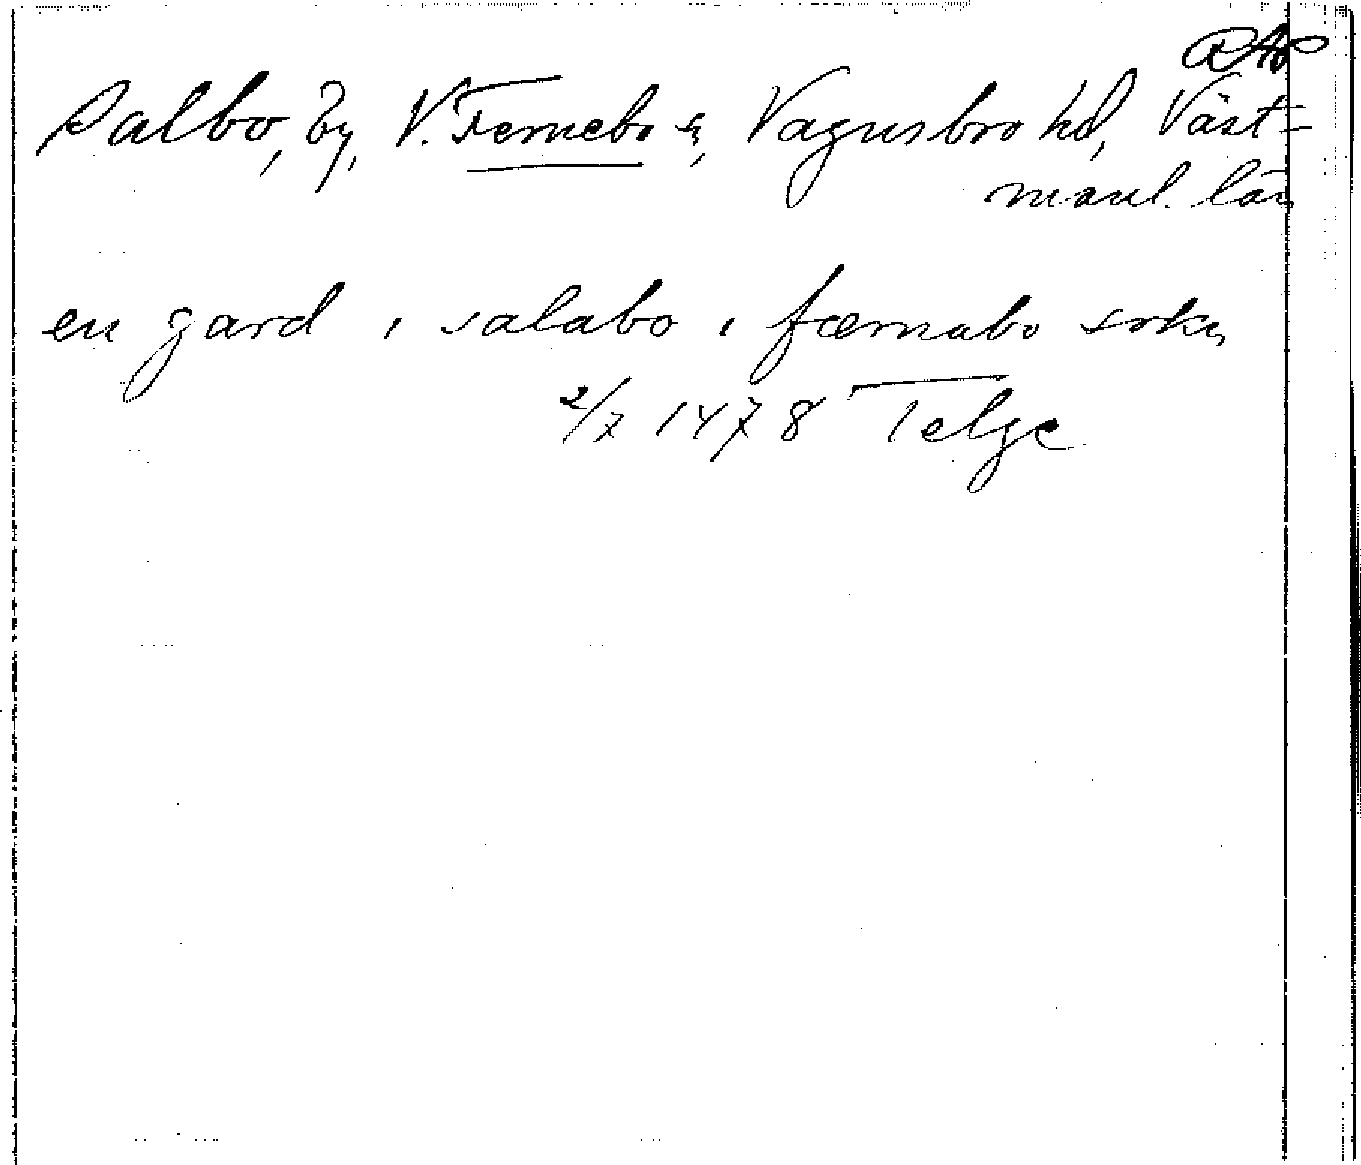 RAp
Salbo, by, V. Fernebo sn, Vagnsbro hd, Väst-
manl. län
en gard i salabo i færnabo sokn
2/7 1478 Telge